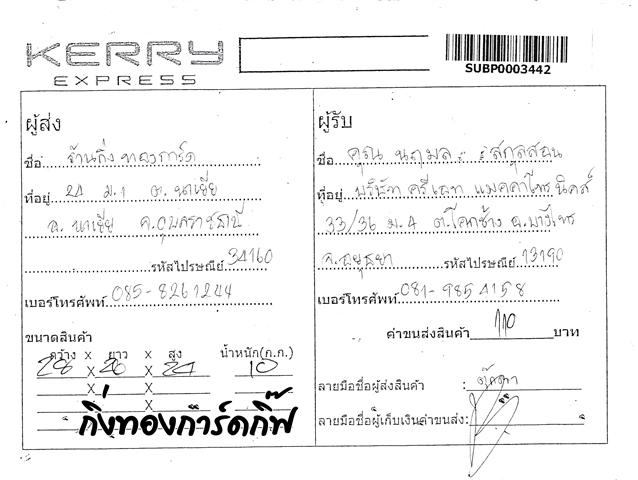 KERRY
EXPRESS
SUBP0003442
ผู้ส่ง
ชื่อ ร้านกิ่งทองการ์ด
ที่อยู่ 24 ม.1 ต. นาเยีย
อ. นาเยีย จ.อุบลราชธานี
รหัสไปรษณีย์ 34160
เบอร์โทรศัพท์ 085-8261244
ขนาดสินค้า
กว้าง x ยาว x สูง น้ำหนัก(ก.ก.)
28 x 20 x 24 10
x x
x x
x
กิ่งทองการ์ดกิ๊ฟ
ผู้รับ
ชื่อ คุณ นฤมล สกุลสอน
ที่อยู่ บริษัท ครีเอท แมคคาโทรนิคส์
33/36 ม.4 ต.โคกช้าง อ.บางไทร
จ.อยุธยา รหัสไปรษณีย์ 13190
เบอร์โทรศัพท์ 081-985 4158
ค่าขนส่งสินค้า 110 บาท
ลายมือชื่อผู้ส่งสินค้า :
ลายมือชื่อผู้เก็บเงินค่าขนส่ง: